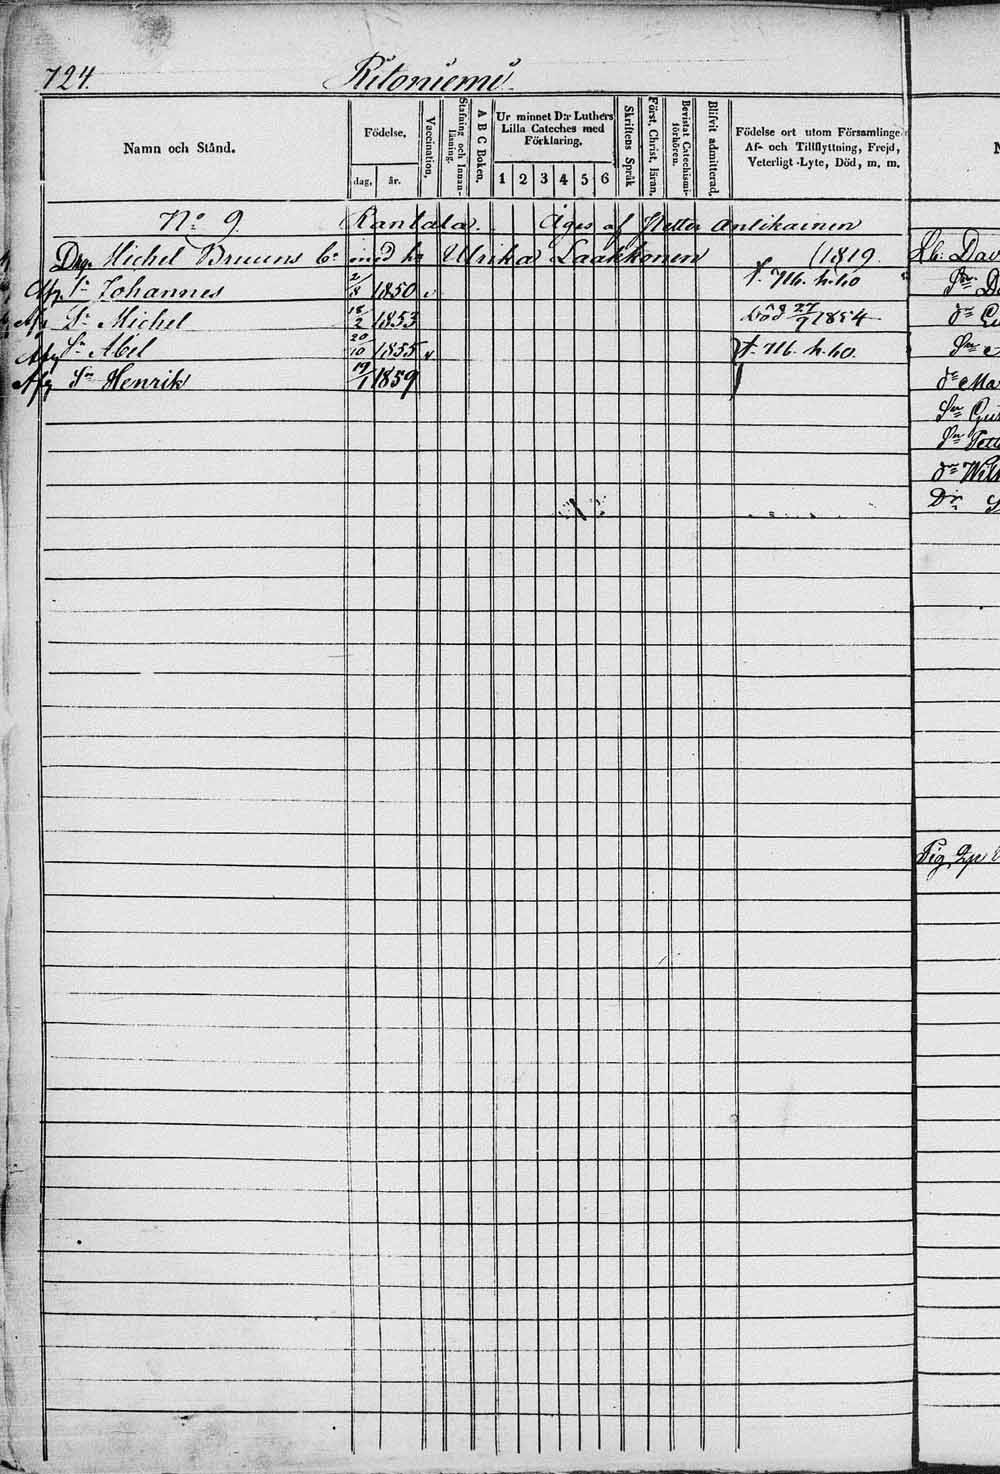 724.
Ritoniemi
Namn och Stånd.
Födelse,
dag,
år.
Vaccination,
Stafning och Innanläsning.
A B C Boken.
Ur minnet D:r Luthers Lilla Cateches med Förklaring,
1 2 3 4 5 6
Skriftens Språk
Först. Christ. läran.
Bevistat Catechismiförhören.
Blifvit admitterad.
Födelse ort utom Församlinge
Af- och Tillflyttning, Frejd,
Veterligt -Lyte, Död, m. m.
N:o 9. Rantala. Äges af Petter Antikainen
Michel Bruuns med h. Ulrika Laakkonen (1819.
Johannes 2/8 1850 v
Afg Sn Michel 18/2 1853 Död 27/7 1854
Afg Sn Abel 20/10 1855 v
Afg Sn Henrik 19/1 1859
Dav
Sn
Sn
Dr Ma
Sn Gus
Sn
Dr Wil
Dr
Pig